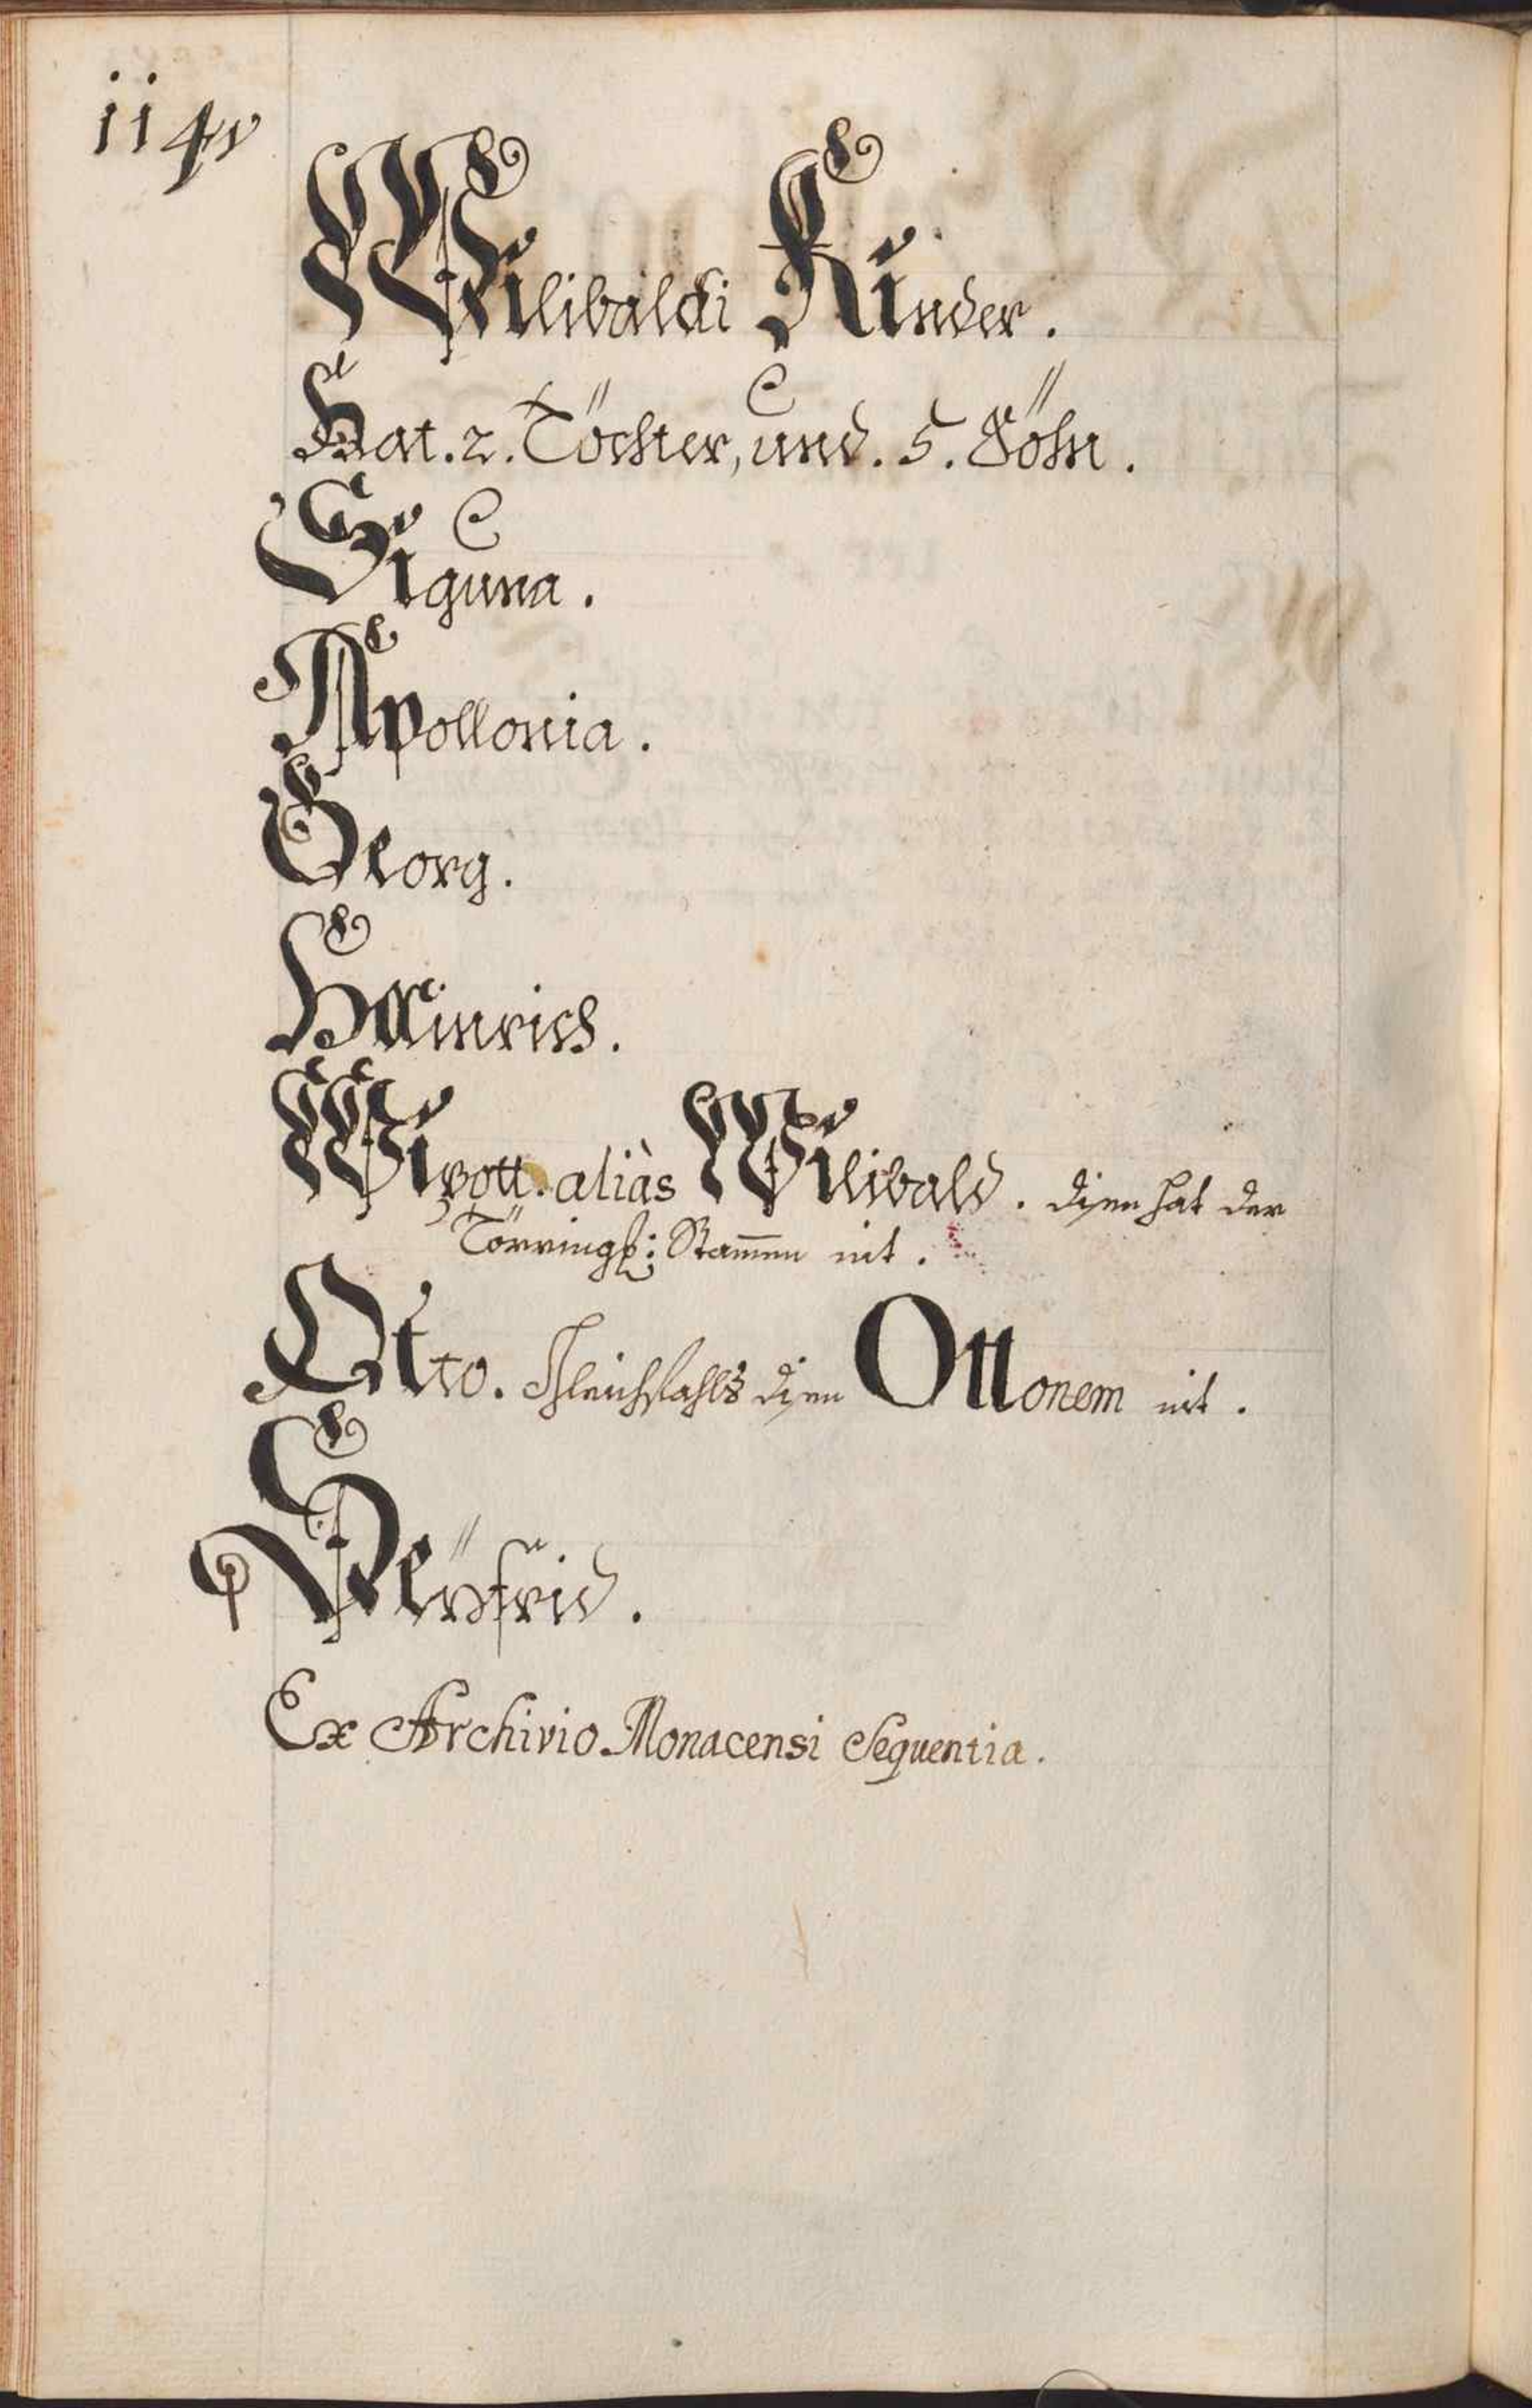 114v
Wilibaldi Kinder.
Hat. 2. Töchter, und. 5. Söhn.
Siguna.
Apollonia.
Georg.
Hainrich.
Wipott. aliàs Wilibald. disen hat der
Törringß: Stam̄en nit.
Otto. Gleichfahls disen Ottonem nit.
Seyfrid.
Ex Archivio Monacensi Sequentia.